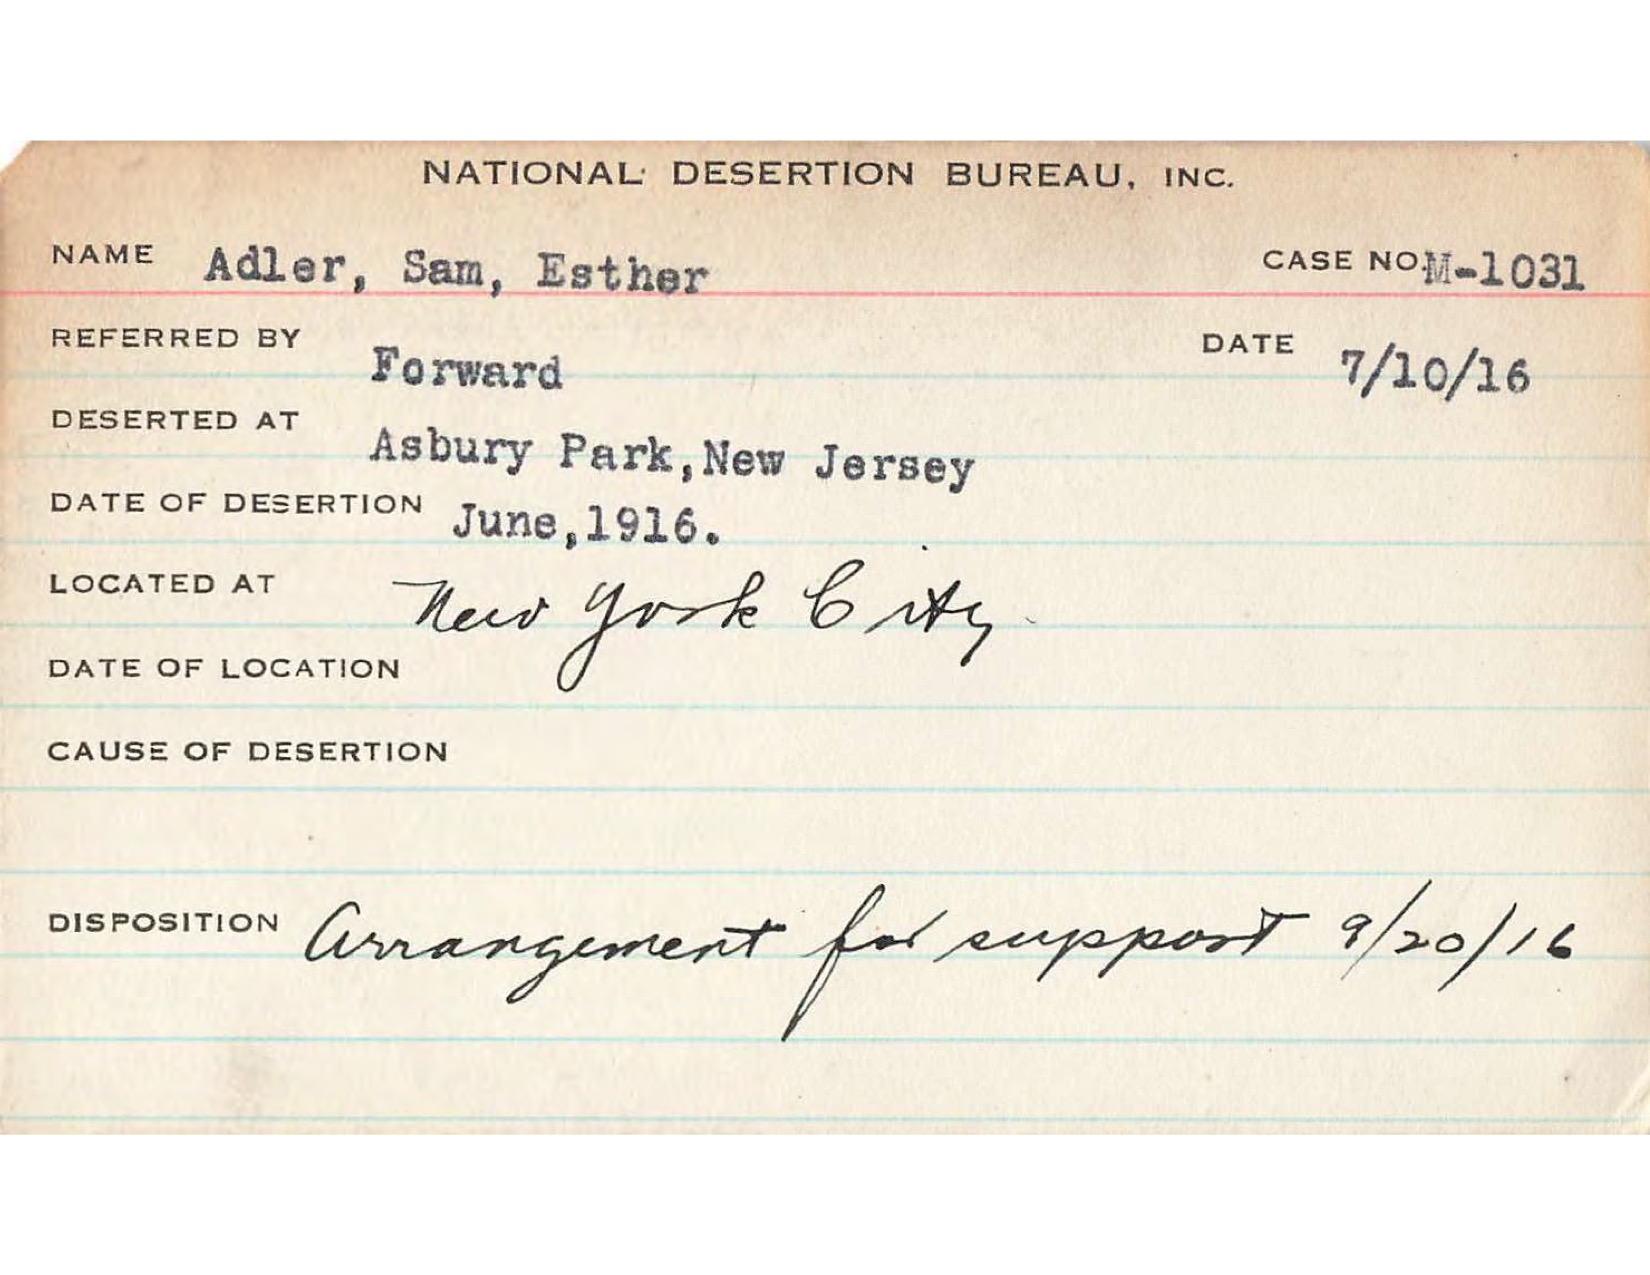 NATIONAL DESERTION BUREAU, INC.
NAME Adler, Sam, Esther CASE NO. M-1031
REFERRED BY Forward DATE 7/10/16
DESERTED AT Asbury Park,New Jersey
DATE OF DESERTION June,1916.
LOCATED AT New York City
DATE OF LOCATION
CAUSE OF DESERTION
DISPOSITION Arrangement for support 9/20/16